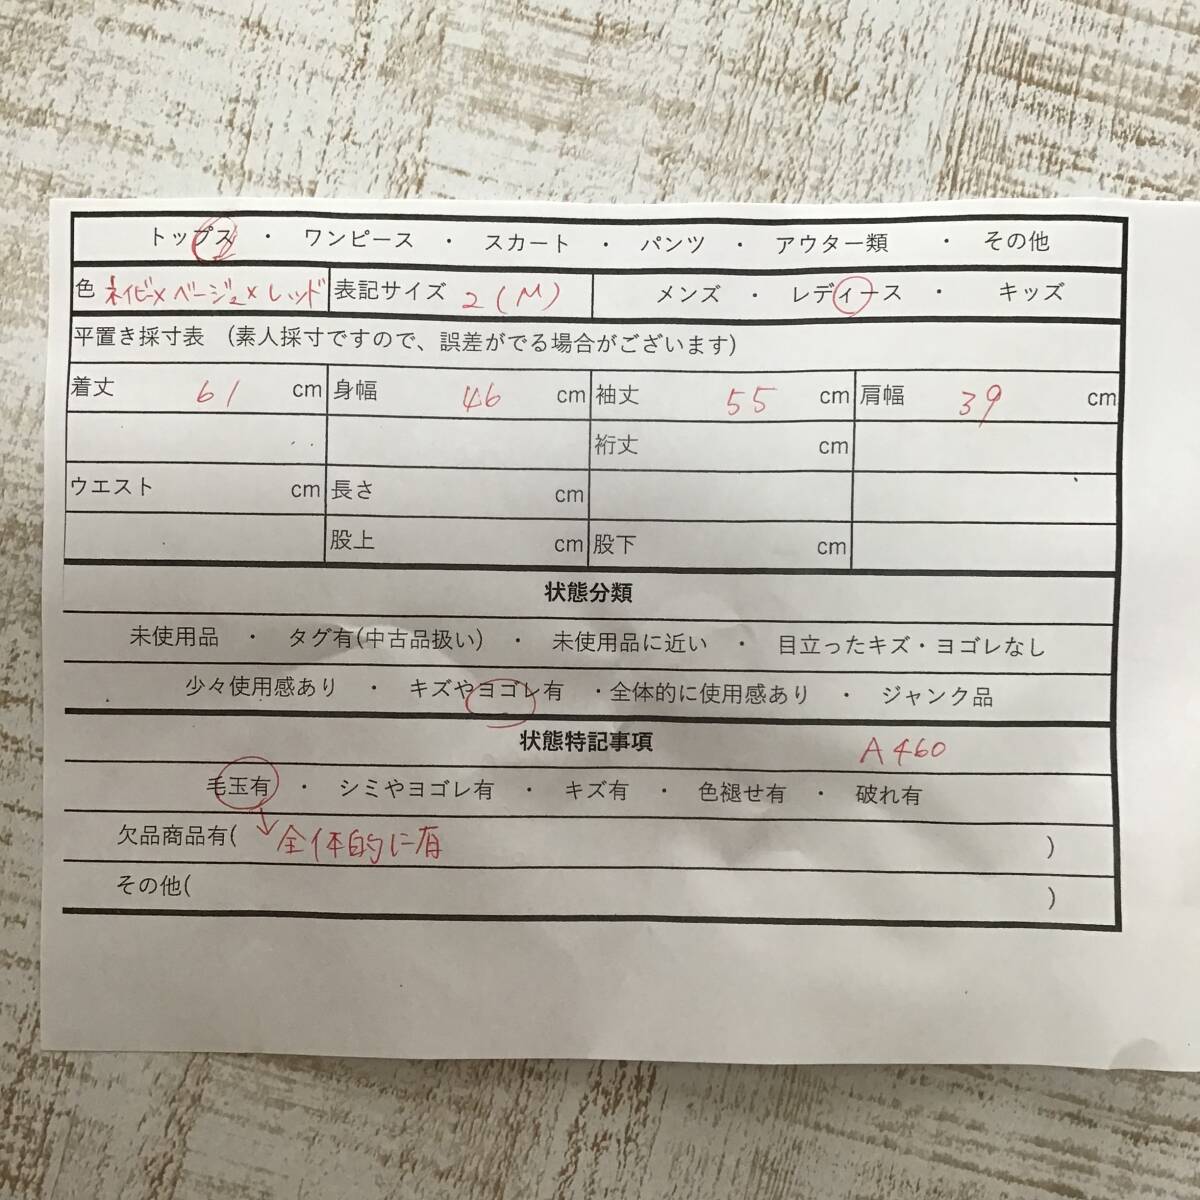 トップス ・ ワンピース ・ スカート ・ パンツ ・ アウター類 ・ その他
色 ネイビー×ベージュ×レッド 表記サイズ 2(M) メンズ ・ レディース ・ キッズ
平置き採寸表 (素人採寸ですので、誤差がでる場合がございます)
着丈 61 cm 身幅 46 cm 袖丈 55 cm 肩幅 39 cm
裄丈 cm
ウエスト cm 長さ cm
股上 cm 股下 cm
状態分類
未使用品 ・ タグ有(中古品扱い) ・ 未使用品に近い ・ 目立ったキズ・ヨゴレなし
少々使用感あり ・ キズやヨゴレ有 ・全体的に使用感あり ・ ジャンク品
状態特記事項 A460
毛玉有 ・ シミやヨゴレ有 ・ キズ有 ・ 色褪せ有 ・ 破れ有
欠品商品有( →全体的に有 )
その他( )